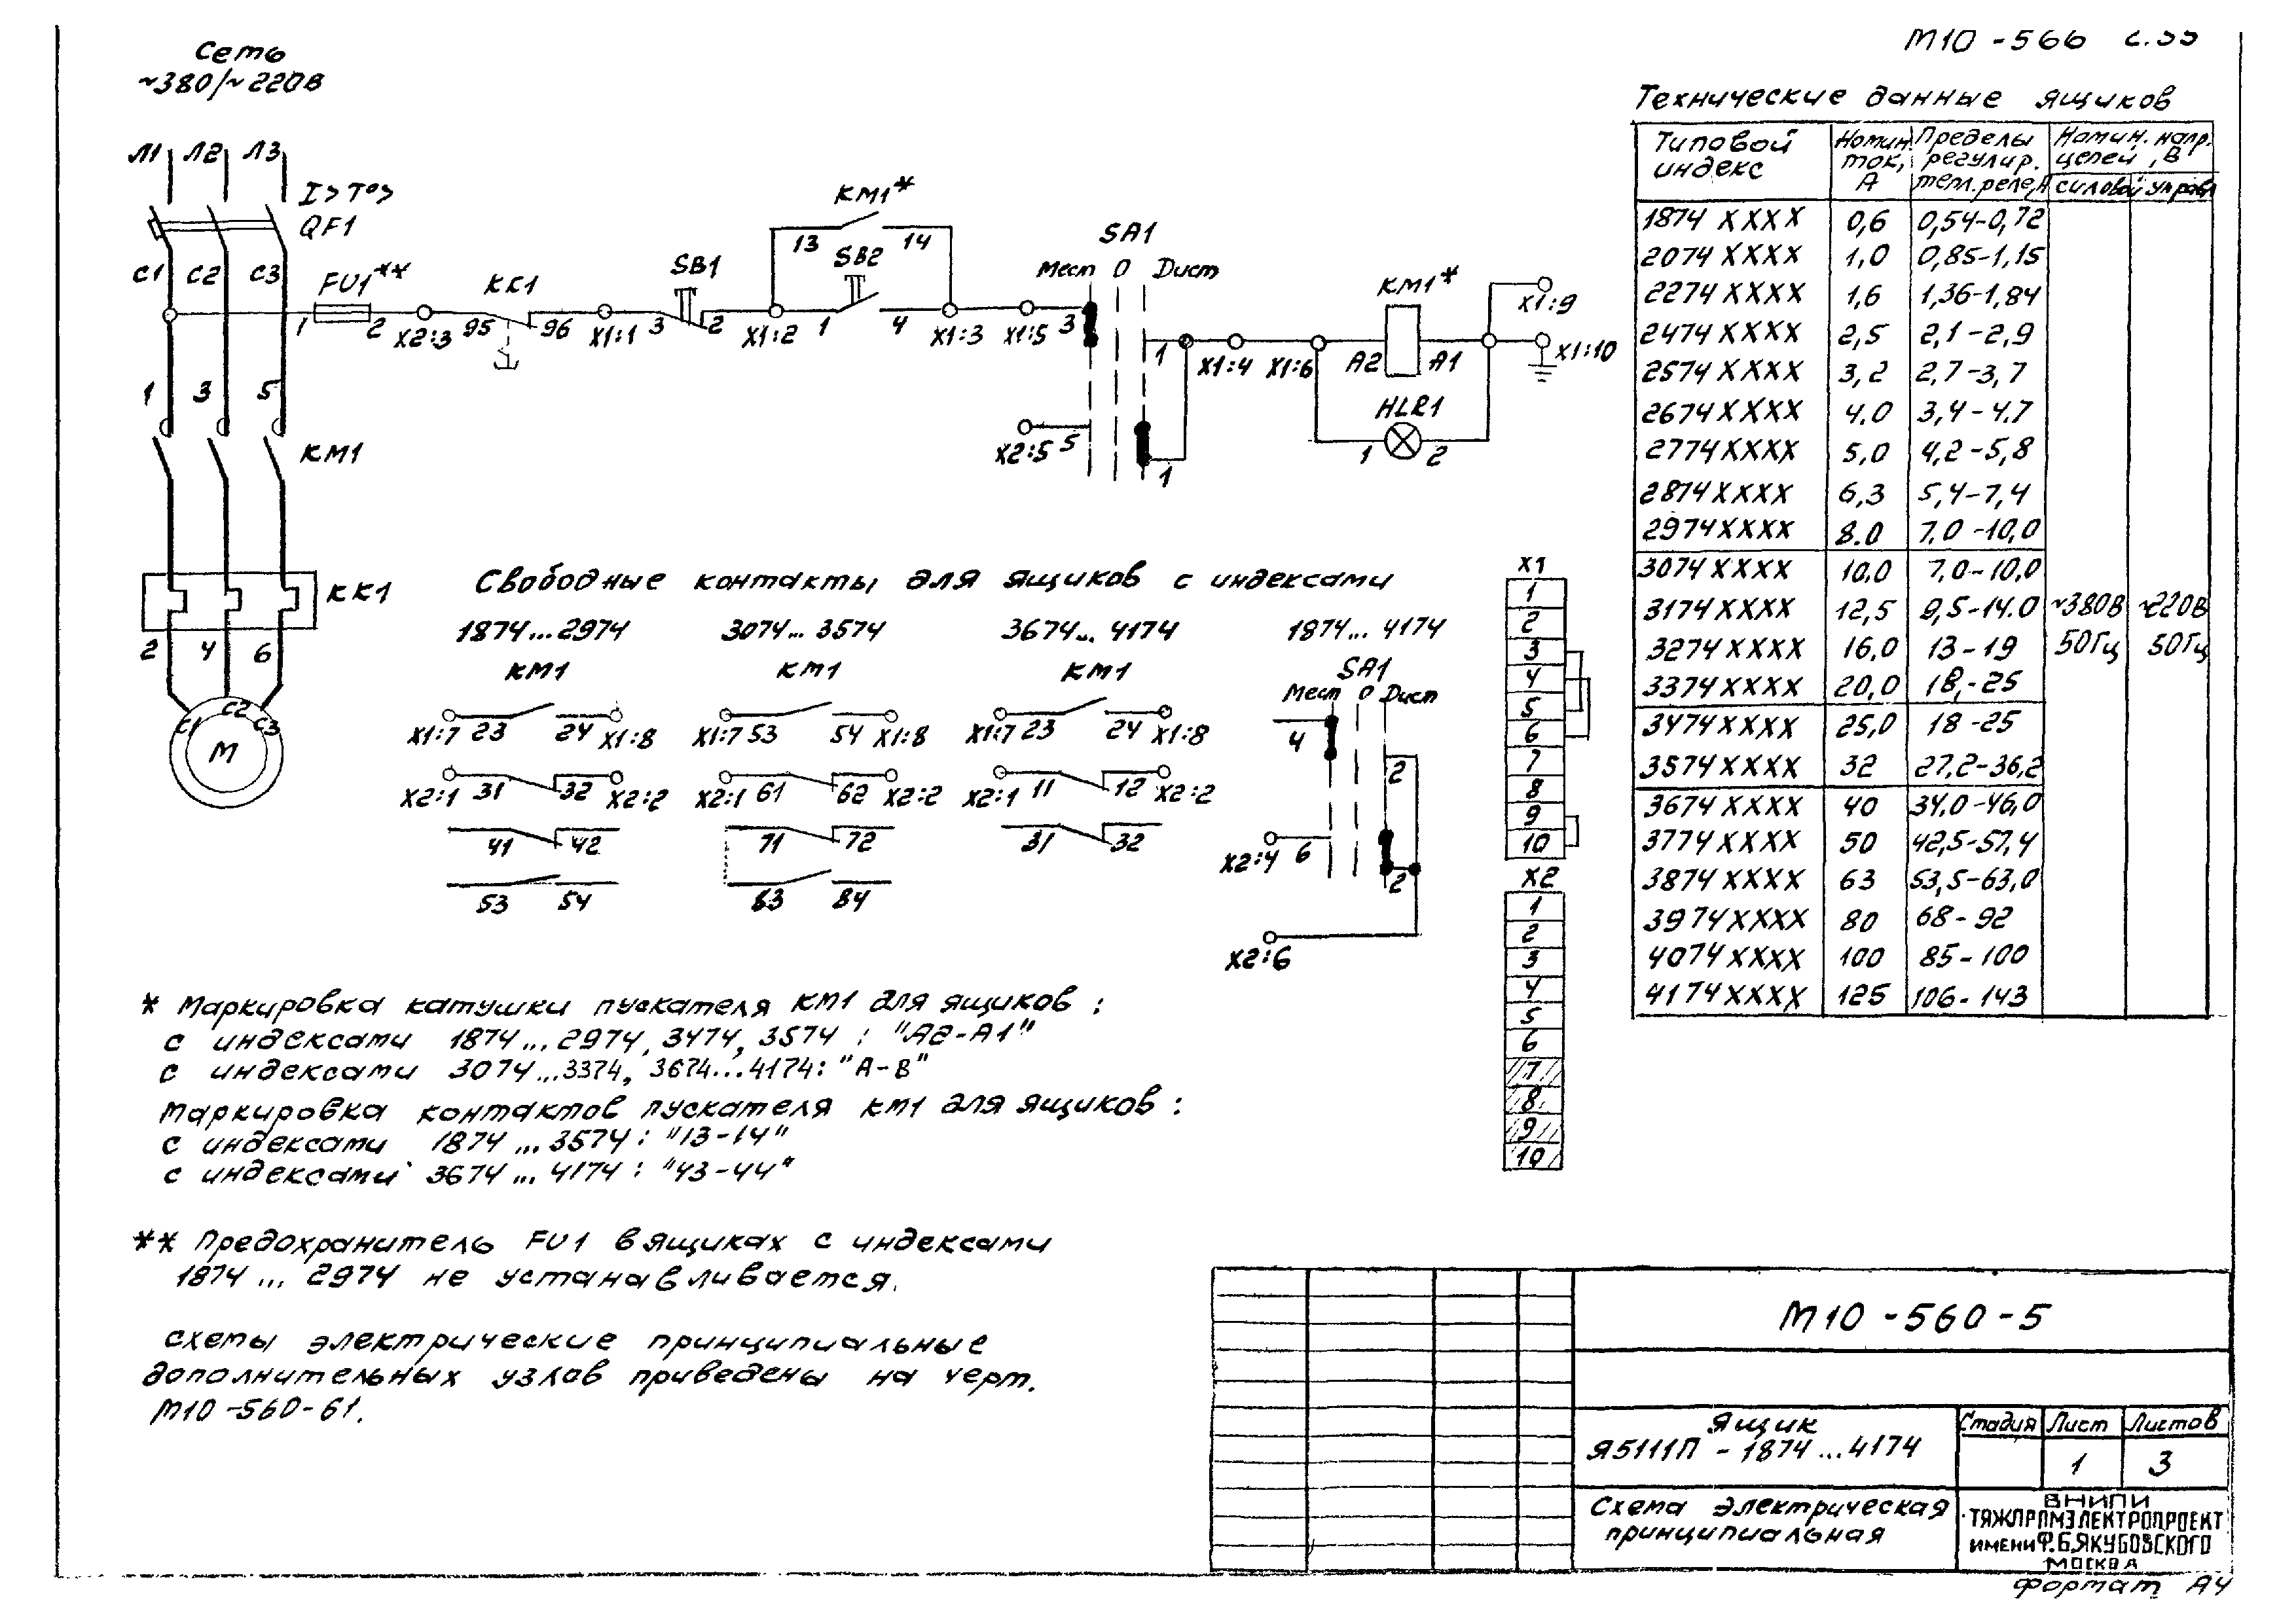 М10-566 с.35
Сеть
~380/~220В
Л1 Л2 Л3
I> T°>
QF1
С1 С2 С3
FU1**
1 2
X2:3
КК1
95 96
X1:1
SB1
3 2
X1:2
КМ1*
13 14
SB2
1 4
X1:3
X1:5
SA1
Мест 0 Дист
3
1
X2:5 5
1
X1:4 X1:6
КМ1*
A2 A1
HLR1
1 2
X1:9
X1:10
1 3 5
КМ1
КК1
2 4 6
С1 С2 С3
М
Свободные контакты для ящиков с индексами
1874...2974 3074...3574 3674...4174 1874...4174
КМ1 КМ1 КМ1 SA1
Мест 0 Дист
X1:7 23 24 X1:8 X1:7 53 54 X1:8 X1:7 23 24 X1:8
4
2
X2:1 31 32 X2:2 X2:1 61 62 X2:2 X2:1 11 12 X2:2
41 42 71 72 31 32
X2:4 6
2
53 54 63 84
X2:6
X1
1
2
3
4
5
6
7
8
9
10
X2
1
2
3
4
5
6
7
8
9
10
Технические данные ящиков
Типовой индекс Номин. ток, А Пределы регулир. тепл.реле,А Номин. напр. цепей, В
силовой управл
1874XXXX 0,6 0,54-0,72
2074XXXX 1,0 0,85-1,15
2274XXXX 1,6 1,36-1,84
2474XXXX 2,5 2,1-2,9
2574XXXX 3,2 2,7-3,7
2674XXXX 4.0 3,4-4.7
2774XXXX 5,0 4,2-5,8
2874XXXX 6,3 5,4-7,4
2974XXXX 8.0 7,0-10,0
3074XXXX 10,0 7,0-10,0
3174XXXX 12,5 9,5-14.0 ~380В ~220В
3274XXXX 16,0 13-19 50Гц 50Гц
3374XXXX 20,0 18,-25
3474XXXX 25,0 18-25
3574XXXX 32 27,2-36,2
3674XXXX 40 34,0-46,0
3774XXXX 50 42,5-57,4
3874XXXX 63 53,5-63,0
3974XXXX 80 68-92
4074XXXX 100 85-100
4174XXXX 125 106-143
* Маркировка катушки пускателя КМ1 для ящиков:
с индексами 1874...2974, 3474, 3574: "А2-А1"
с индексами 3074...3374, 3674...4174: "А-В"
Маркировка контактов пускателя КМ1 для ящиков:
с индексами 1874...3574: "13-14"
с индексами 3674...4174: "43-44"
** Предохранитель FU1 в ящиках с индексами
1874... 2974 не устанавливается.
Схемы электрические принципиальные
дополнительных узлов приведены на черт.
М10-560-61.
М10-560-5
Ящик
Я5111П - 1874...4174
Стадия Лист Листов
1 3
Схема электрическая
принципиальная
ВНИПИ
ТЯЖПРОМЭЛЕКТРОПРОЕКТ
ИМЕНИ Ф.Б.ЯКУБОВСКОГО
МОСКВА
Формат А4